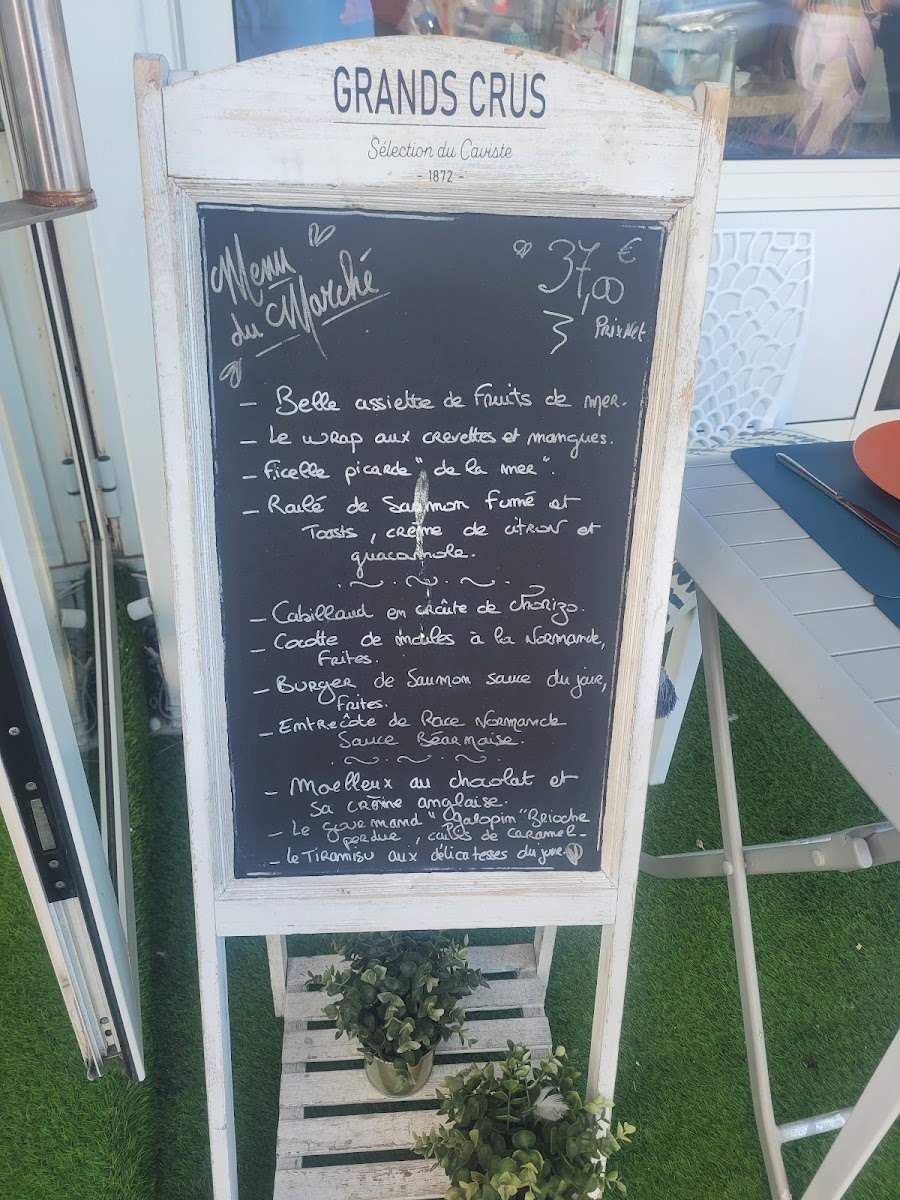 GRANDS CRUS
Sélection du Caviste
- 1872 -
Menu
du Marché
37,00 €
Prix Net
- Belle assiette de Fruits de mer.
- Le wrap aux crevettes et mangues.
- Ficelle picarde "de la mer".
- Roulé de Saumon Fumé et
Toasts, crème de citron et
guacamole.
- Cabillaud en croûte de chorizo.
- Cocotte de moules à la Normande,
Frites.
- Burger de Saumon sauce du jour,
Frites.
- Entrecôte de Race Normande
Sauce Béarnaise.
- Moelleux au chocolat et
sa crème anglaise.
- Le gourmand "Galopin" Brioche
perdue, de caramel -
- Le Tiramisu aux délicatesses du jour.